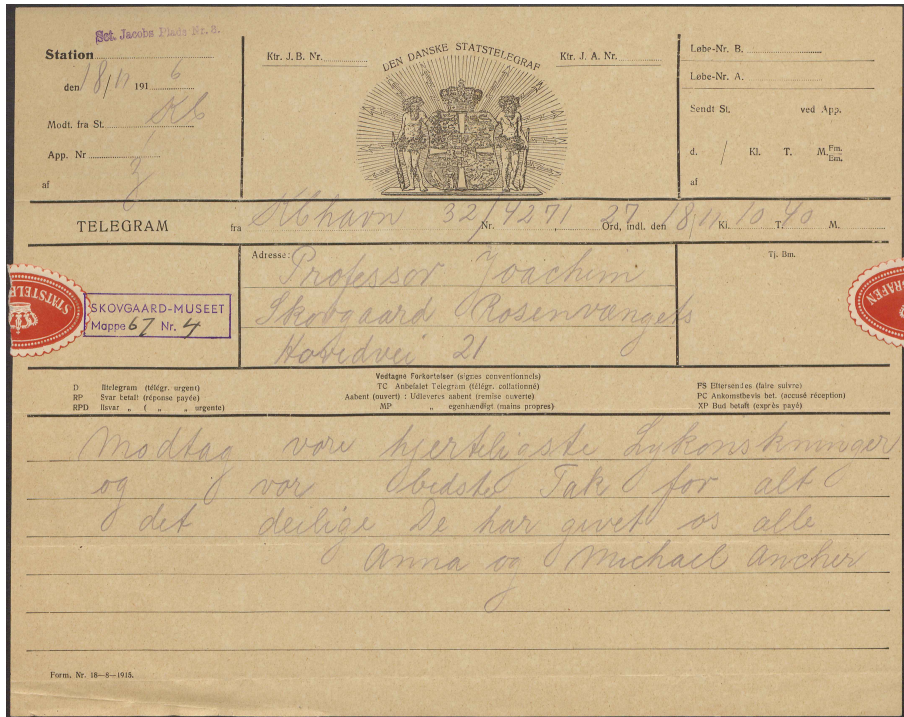 Sct. Jacobs Plads Nr. 8.
Station
den 18/11 1916
Modt. fra St. Kh
App. Nr
af
Ktr. J. B. Nr.
DEN DANSKE STATSTELEGRAF
Ktr. J. A. Nr.
Løbe-Nr. B.
Løbe-Nr. A.
Sendt St. ved App.
d. / Kl. T. M. Fm. Em.
af
TELEGRAM fra Kbhavn 32/4271 Nr. 27 Ord, indl. den 18/11 Kl. 10 T. 40 M.
STATSTELE
SKOVGAARD-MUSEET
Mappe 67 Nr. 4
Adresse: Professor Joachim
Skovgaard Rosenvængets
Hovedvei 21
Tj. Bm.
GRAFEN
Vedtagne Forkortelser (signes conventionnels)
D Iltelegram (télégr. urgent)
RP Svar betalt (réponse payée)
RPD Ilsvar „ ( „ „ urgente)
TC Anbefalet Telegram (télégr. collationné)
Aabent (ouvert) : Udleveres aabent (remise ouverte)
MP „ egenhændigt (mains propres)
FS Eftersendes (faire suivre)
PC Ankomstbevis bet. (accusé réception)
XP Bud betalt (exprès payé)
Modtag vore hjerteligste Lykonskninger
og vor bedste Tak for alt
det deilige De har givet os alle
Anna og Michael Ancher
Form. Nr. 18—8—1915.